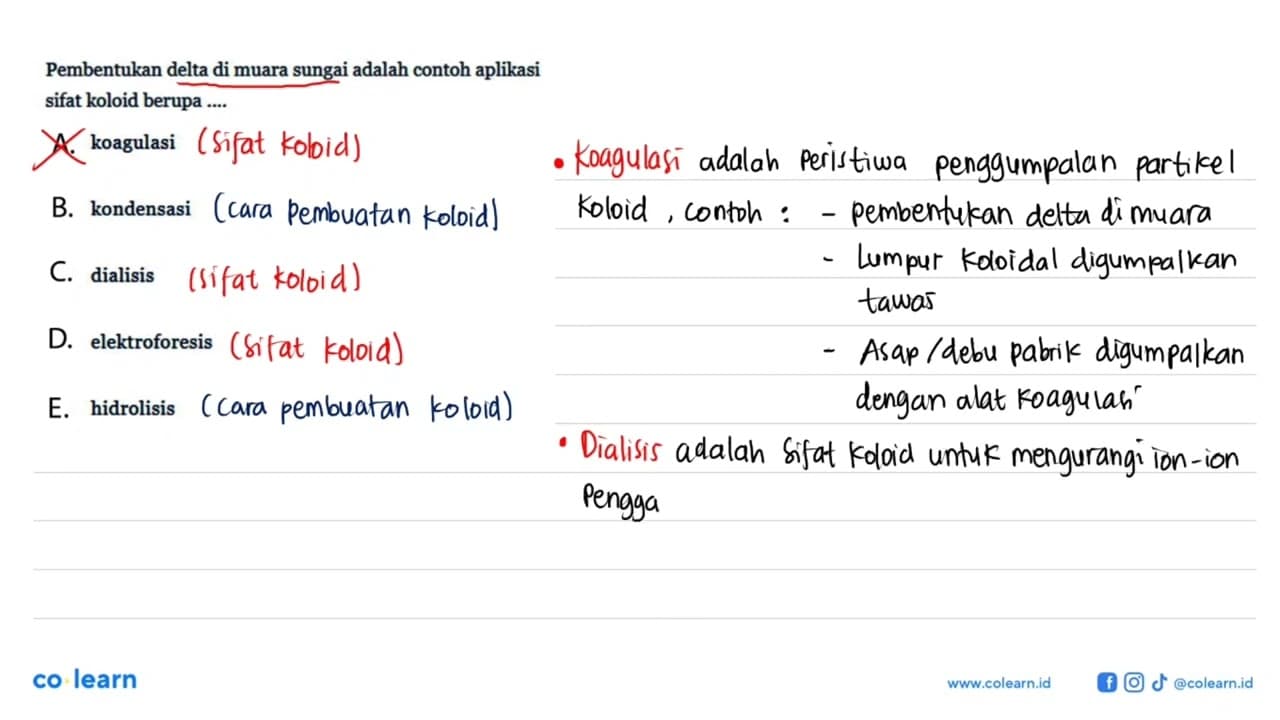 Pembentukan delta di muara sungai adalah contoh aplikasi
sifat koloid berupa ....
A. koagulasi (sifat koloid)
B. kondensasi (cara pembuatan koloid)
C. dialisis (sifat koloid)
D. elektroforesis (sifat koloid)
E. hidrolisis (cara pembuatan koloid)
• Koagulasi adalah peristiwa penggumpalan partikel
koloid, contoh : - pembentukan delta di muara
- Lumpur koloidal digumpalkan
tawas
- Asap/debu pabrik digumpalkan
dengan alat koagulasi
• Dialisis adalah sifat koloid untuk mengurangi ion-ion
Pengga
co learn
www.colearn.id
@colearn.id